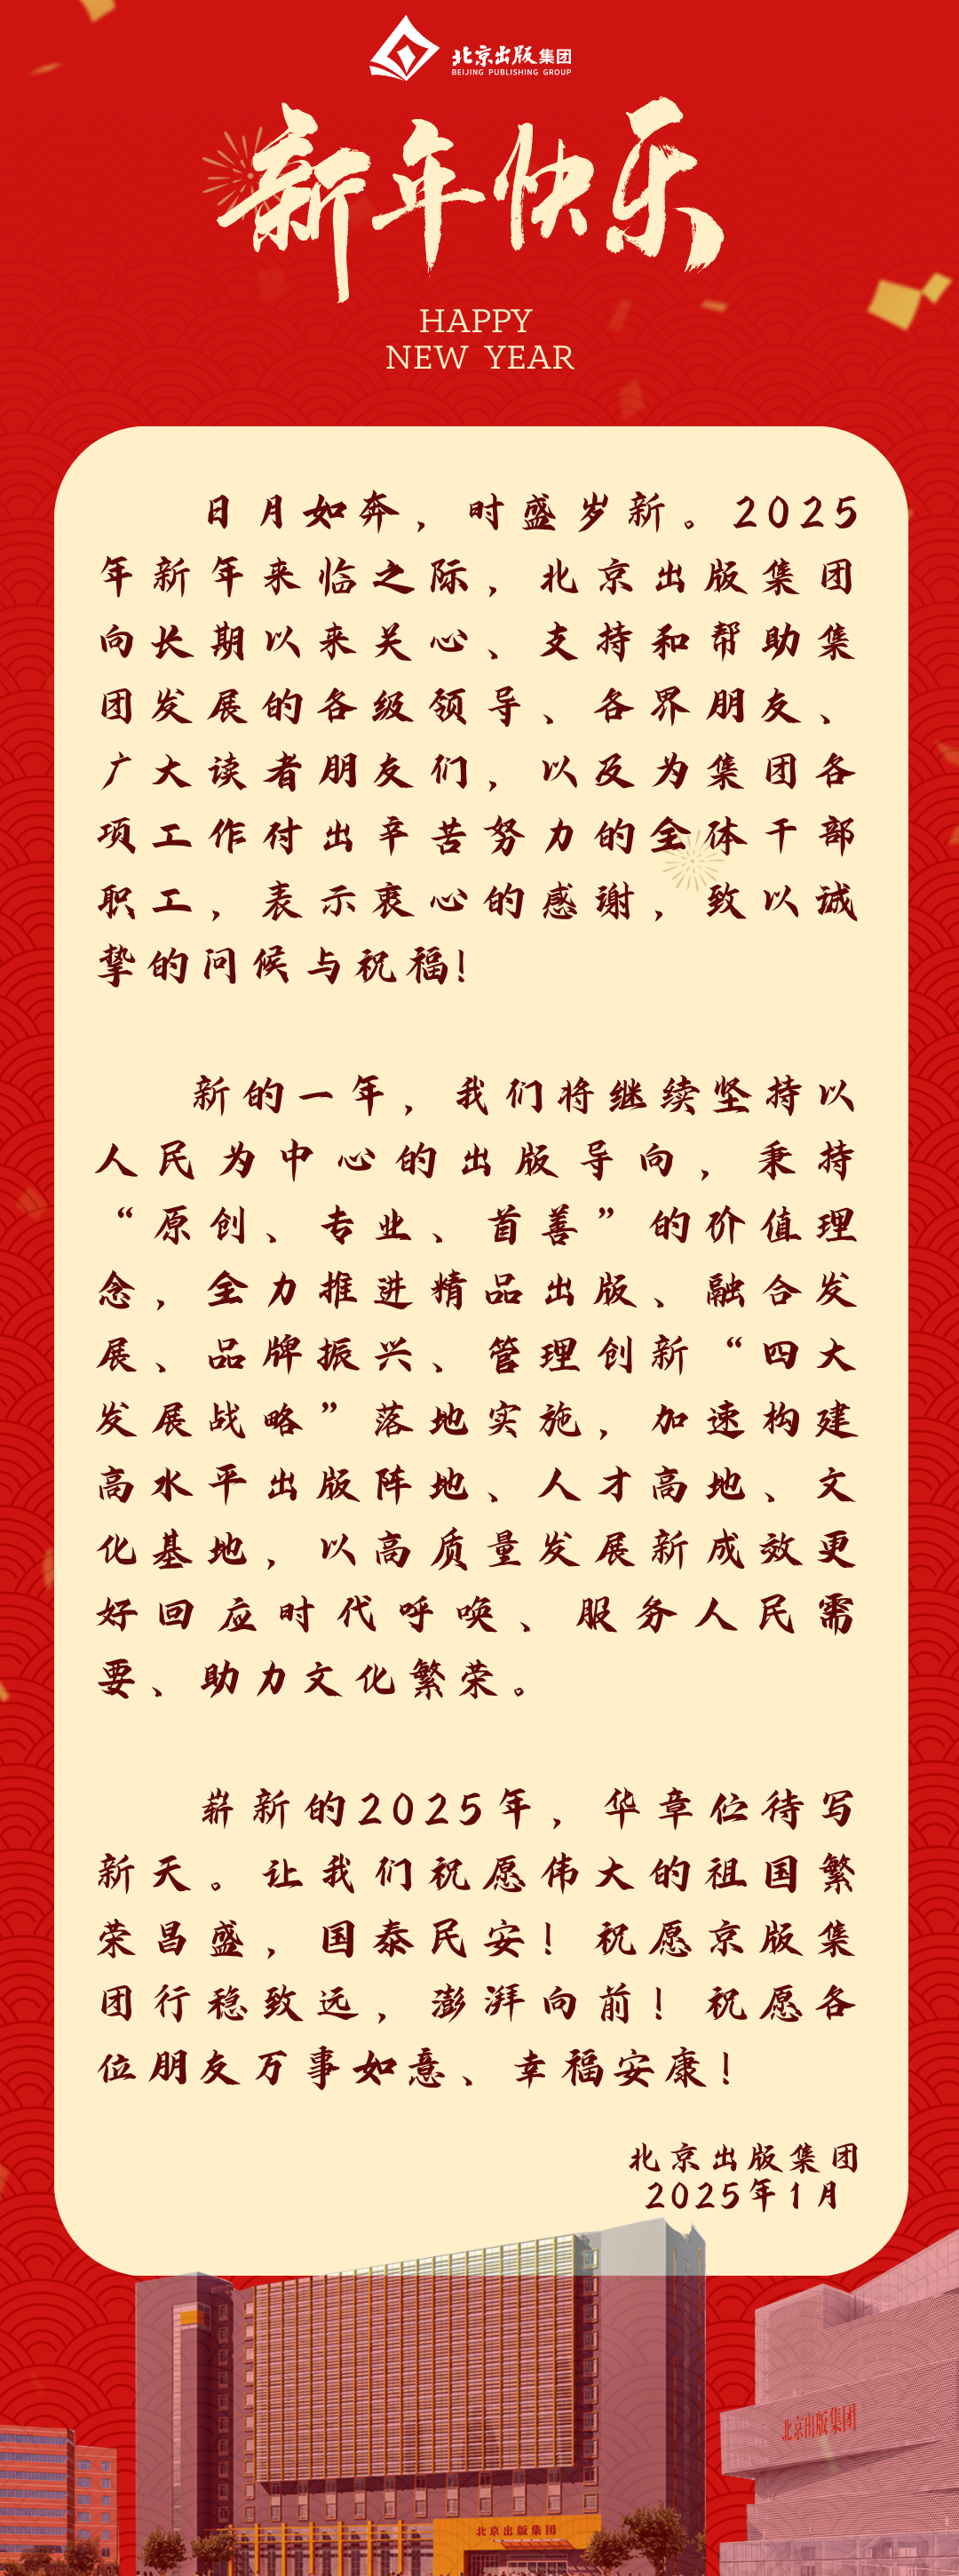 北京出版集团
BEIJING PUBLISHING GROUP
新年快乐
HAPPY
NEW YEAR
日月如奔，时盛岁新。2025
年新年来临之际，北京出版集团
向长期以来关心、支持和帮助集
团发展的各级领导、各界朋友、
广大读者朋友们，以及为集团各
项工作付出辛苦努力的全体干部
职工，表示衷心的感谢，致以诚
挚的问候与祝福！
新的一年，我们将继续坚持以
人民为中心的出版导向，秉持
“原创、专业、首善”的价值理
念，全力推进精品出版、融合发
展、品牌振兴、管理创新“四大
发展战略”落地实施，加速构建
高水平出版阵地、人才高地、文
化基地，以高质量发展新成效更
好回应时代呼唤、服务人民需
要、助力文化繁荣。
崭新的2025年，华章伫待写
新天。让我们祝愿伟大的祖国繁
荣昌盛，国泰民安！祝愿京版集
团行稳致远，澎湃向前！祝愿各
位朋友万事如意、幸福安康！
北京出版集团
2025年1月
北京出版集团
北京出版集团